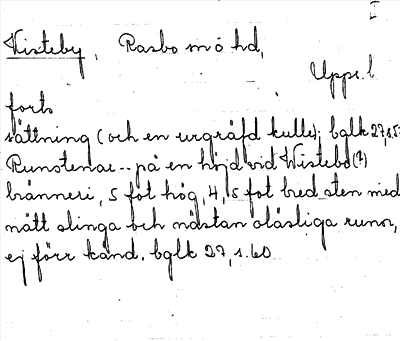 I
Wisteby, Rasbo m o hd,
Upps. l
forts
sättning (och en urgräfd kulle); bglk 27, s. 5
Runstenar -- på en höjd vid Wistebo(?)
bränneri, 5 fot hög, 4,5 fot bred sten med
nätt slinga och nästan oläsliga runor,
ej förr känd. bglk 27, s. 60